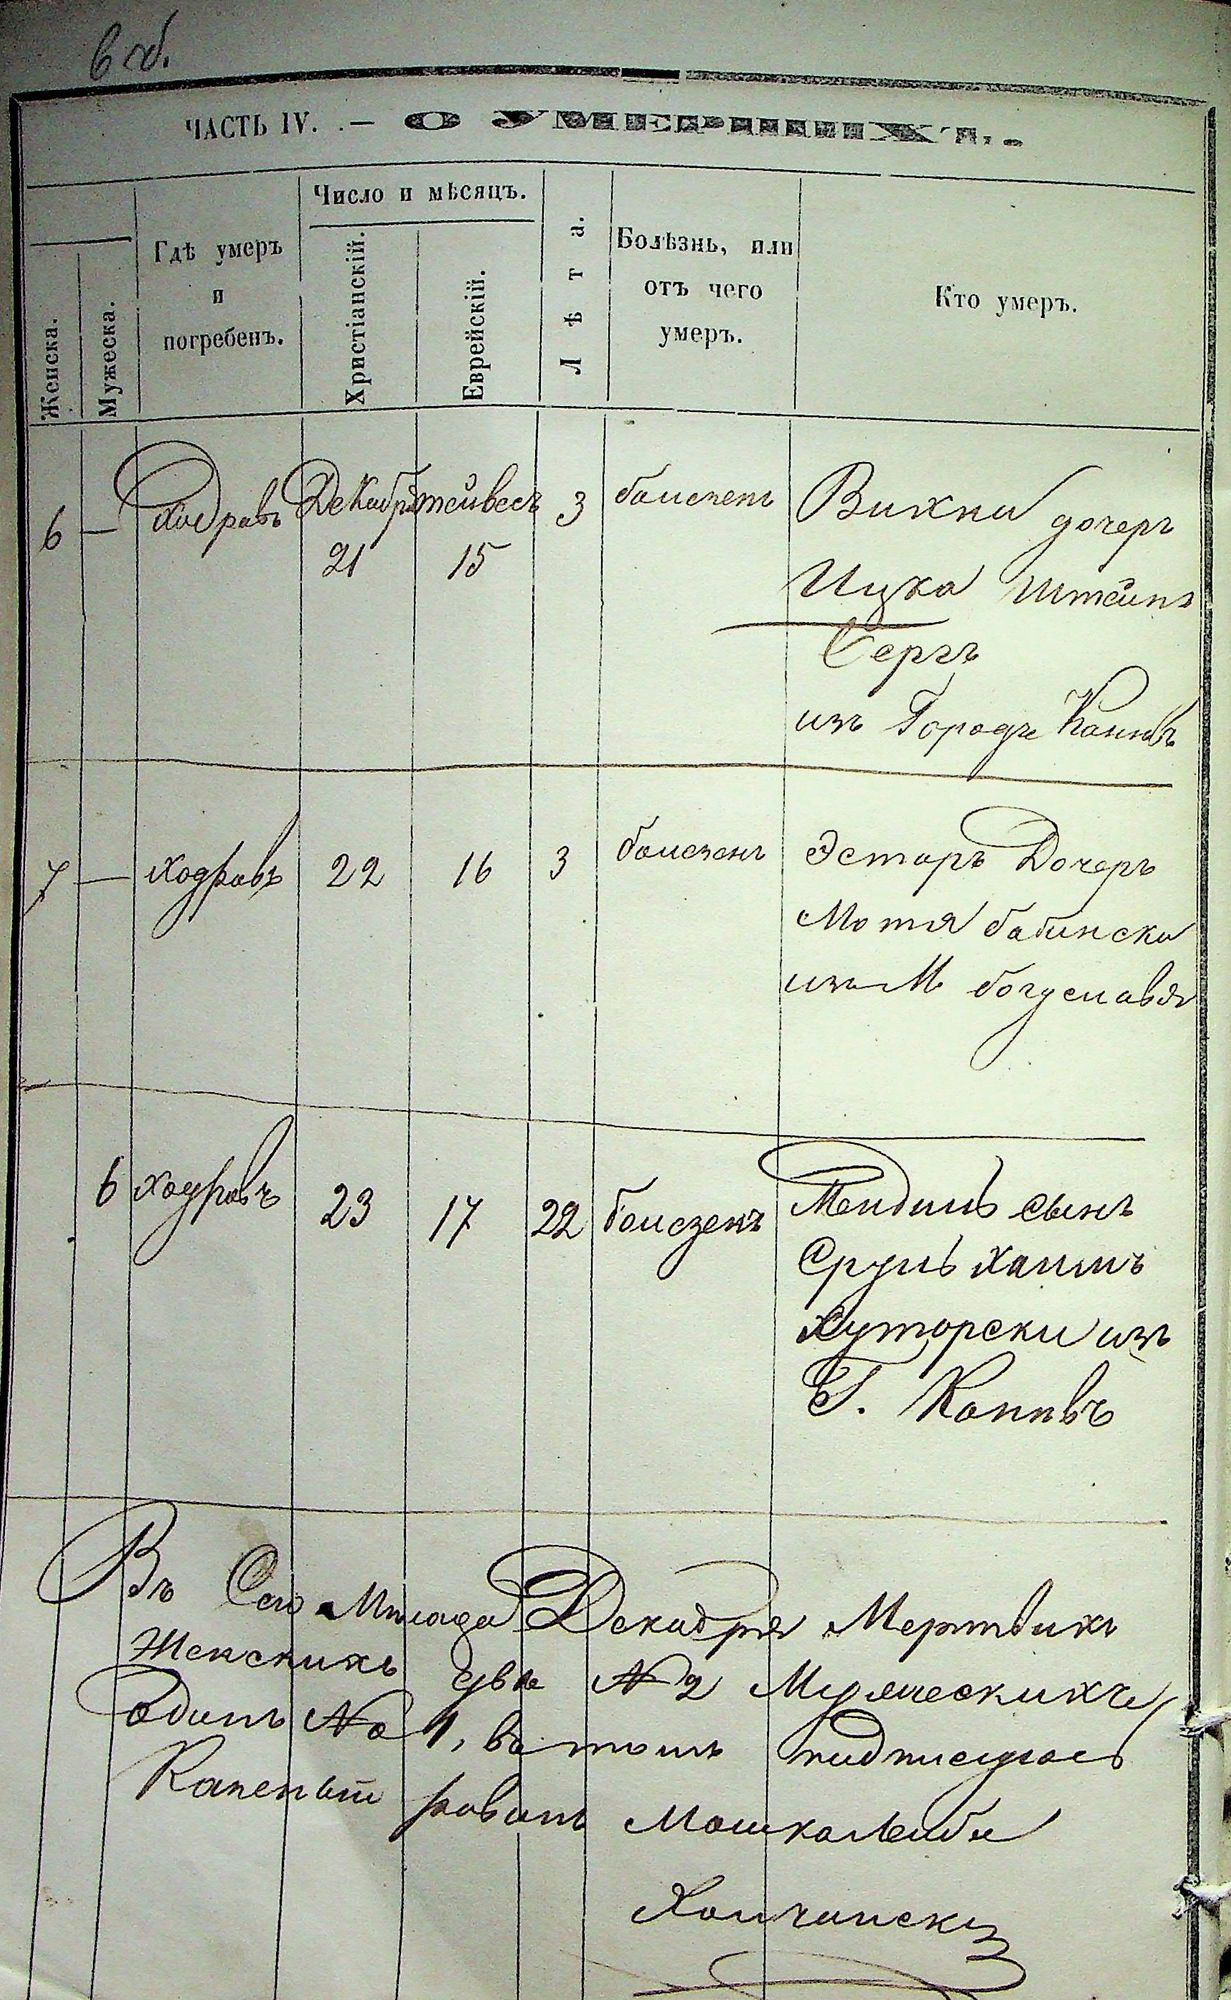 6 об.
ЧАСТЬ IV. — О УМЕРШИХЪ.
Женска.
Мужеска.
Гдѣ умеръ и погребенъ.
Число и мѣсяцъ.
Христіанскій.
Еврейскій.
Лѣта.
Болѣзнь, или отъ чего умеръ.
Кто умеръ.
6 — Ходравъ Декабря тейвесъ 3 боизень Вихни дочеръ
21 15
Ицка Штейнъ
Бергъ
изъ Городъ Канивъ
7 — Ходравъ 22 16 3 боизень Эстаръ Дочеръ
Мотя бабински
изъ М богуславля
6 ходравъ 23 17 22 боизень Мендиль сынъ
Сруль Хаимъ
Хуторски изъ
Г. Канивъ
Въ Сего Месяца Декабря Мертвихъ
Женскихъ два № 2 Мужескихъ
Одинъ № 1, въ томъ подписуюсь
Казеный равинъ Мошка Лейба